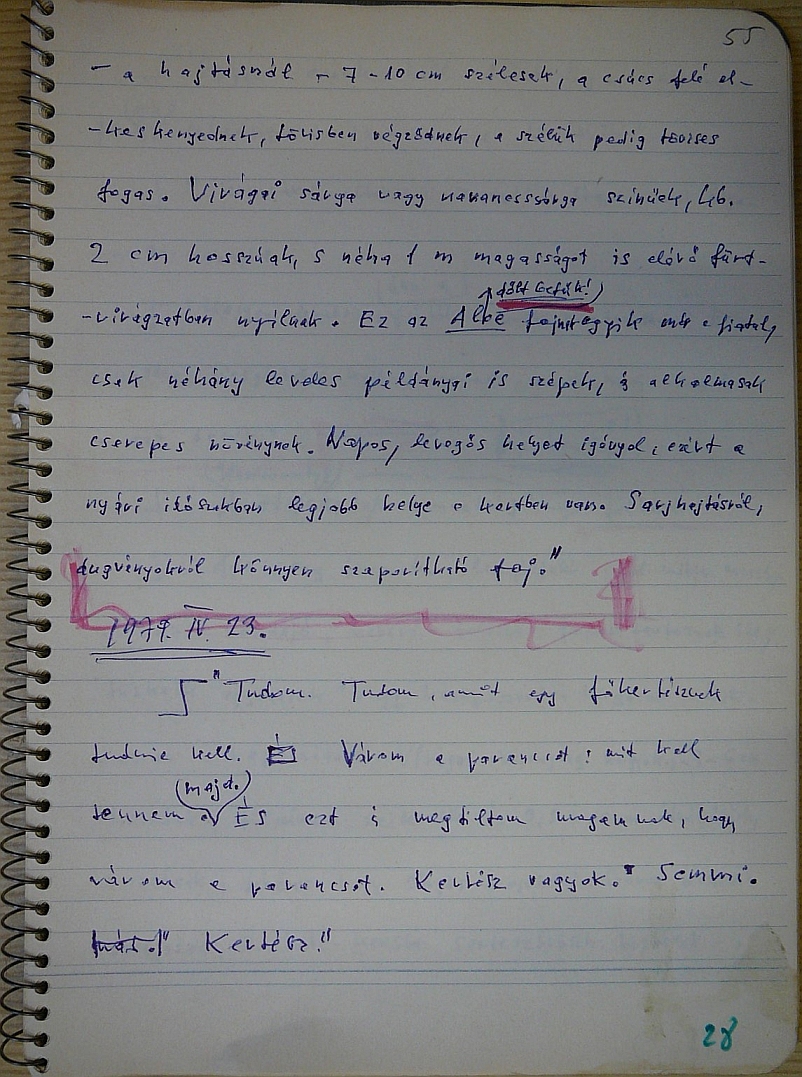 55
- a hajtásnál - 7-10 cm szélesek, a csúcs felé el-
-keskenyednek, tövisben végződnek, a szélük pedig tövises
fogas. Virágai sárga vagy narancssárga színűek, kb.
2 cm hosszúak, s néha 1 m magasságot is elérő fürt-
dőlt betűk!
-virágzatban nyílnak. Ez az Aloë fajnak egyik a fiatal,
csak néhány leveles példányai is szépek, s alkalmasak
cserepes növénynek. Napos, levegős helyet igényel, ezért a
nyári időszakban legjobb helye a kertben van. Sarjhajtásról,
dugványokról könnyen szaporítható faj."
1979. IV. 23.
"Tudom. Tudom, amit egy főkertésznek
tudnia kell. És Várom a parancsot: mit kell
(majd.)
tennem. És ezt is megtiltom magamnak, hogy
várom a parancsot. Kertész vagyok." Semmi.
más!" Kertész!"
28